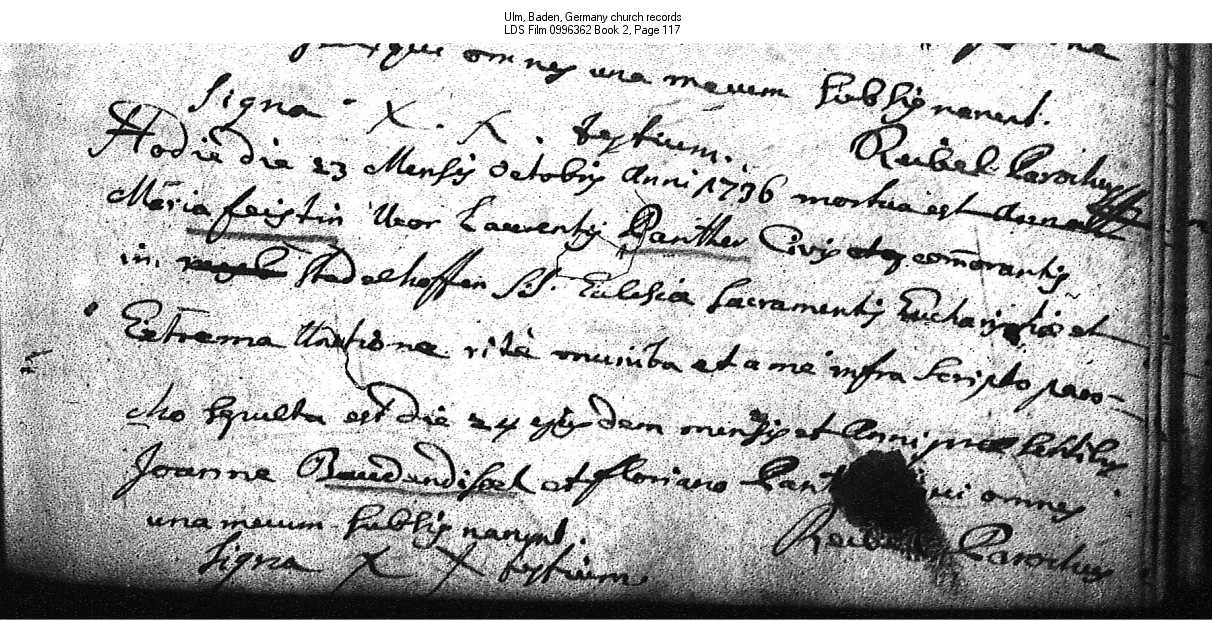 Ulm, Baden, Germany church records
LDS Film 0996362 Book 2, Page 117
omnes una mecum subsignarunt.
Signa X. X. testium. Reibel Parochus
Hodie die 23 Mensis Octobris Anni 1736 mortua est
Maria feistin Uxor Laurentij Panther Civis comorantis
in Stadelhoffen SS. Eulesia sacramentis Eucharistia et
Extrema Unctione rite munita et a me infra scripto paro-
cho sepulta est die 24 ejusdem mensis et Anni prae sentibus
Joanne Baudendistel et floriano omnes
una mecum subsignarunt.
Signa X X testium. Parochus